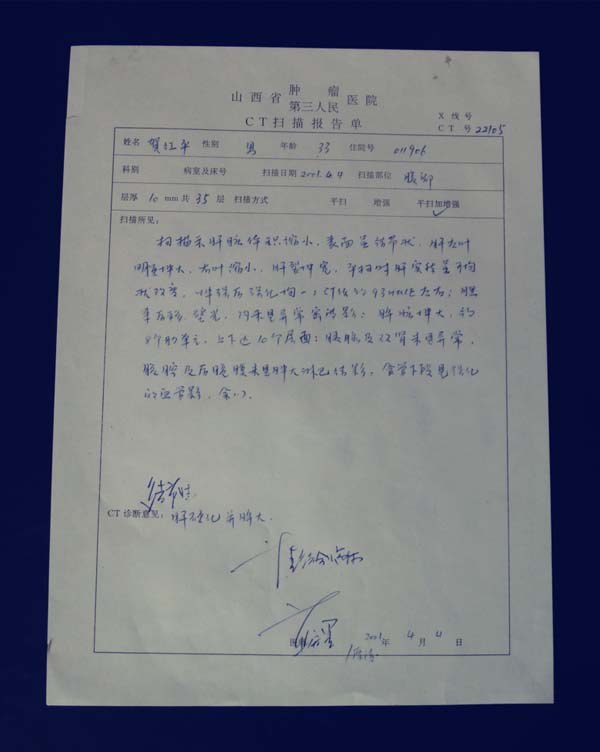 山西省肿瘤医院
第三人民
CT扫描报告单
X线号
CT号 22105
姓名 贺江平 性别 男 年龄 33 住院号 011906
科别 病室及床号 扫描日期 2001.4.4 扫描部位 腹部
层厚 10 mm共 35 层 扫描方式 平扫 增强 平扫加增强
扫描所见:
扫描示肝脏体积缩小,表面呈结节状,肝左叶
增大,右叶缩小,肝裂增宽,平扫时肝实质呈不均
改变,增强后强化均一,CT值约93HU左右;胆
囊 ,内未见异常密度影;脾脏增大,约
8个肋单元,上下达10个层面;胰腺及双肾未见异常,
腹腔及后腹膜未见肿大淋巴结影。食管下段见强化
的血管影,余(-).
CT诊断意见: 肝硬化并脾大.
2001年 4 月 4 日